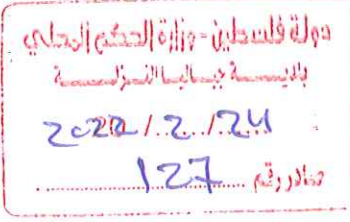 دولة فلسطين - وزارة الحكم المحلي
بلدية
2022/2/24
صادر رقم 127